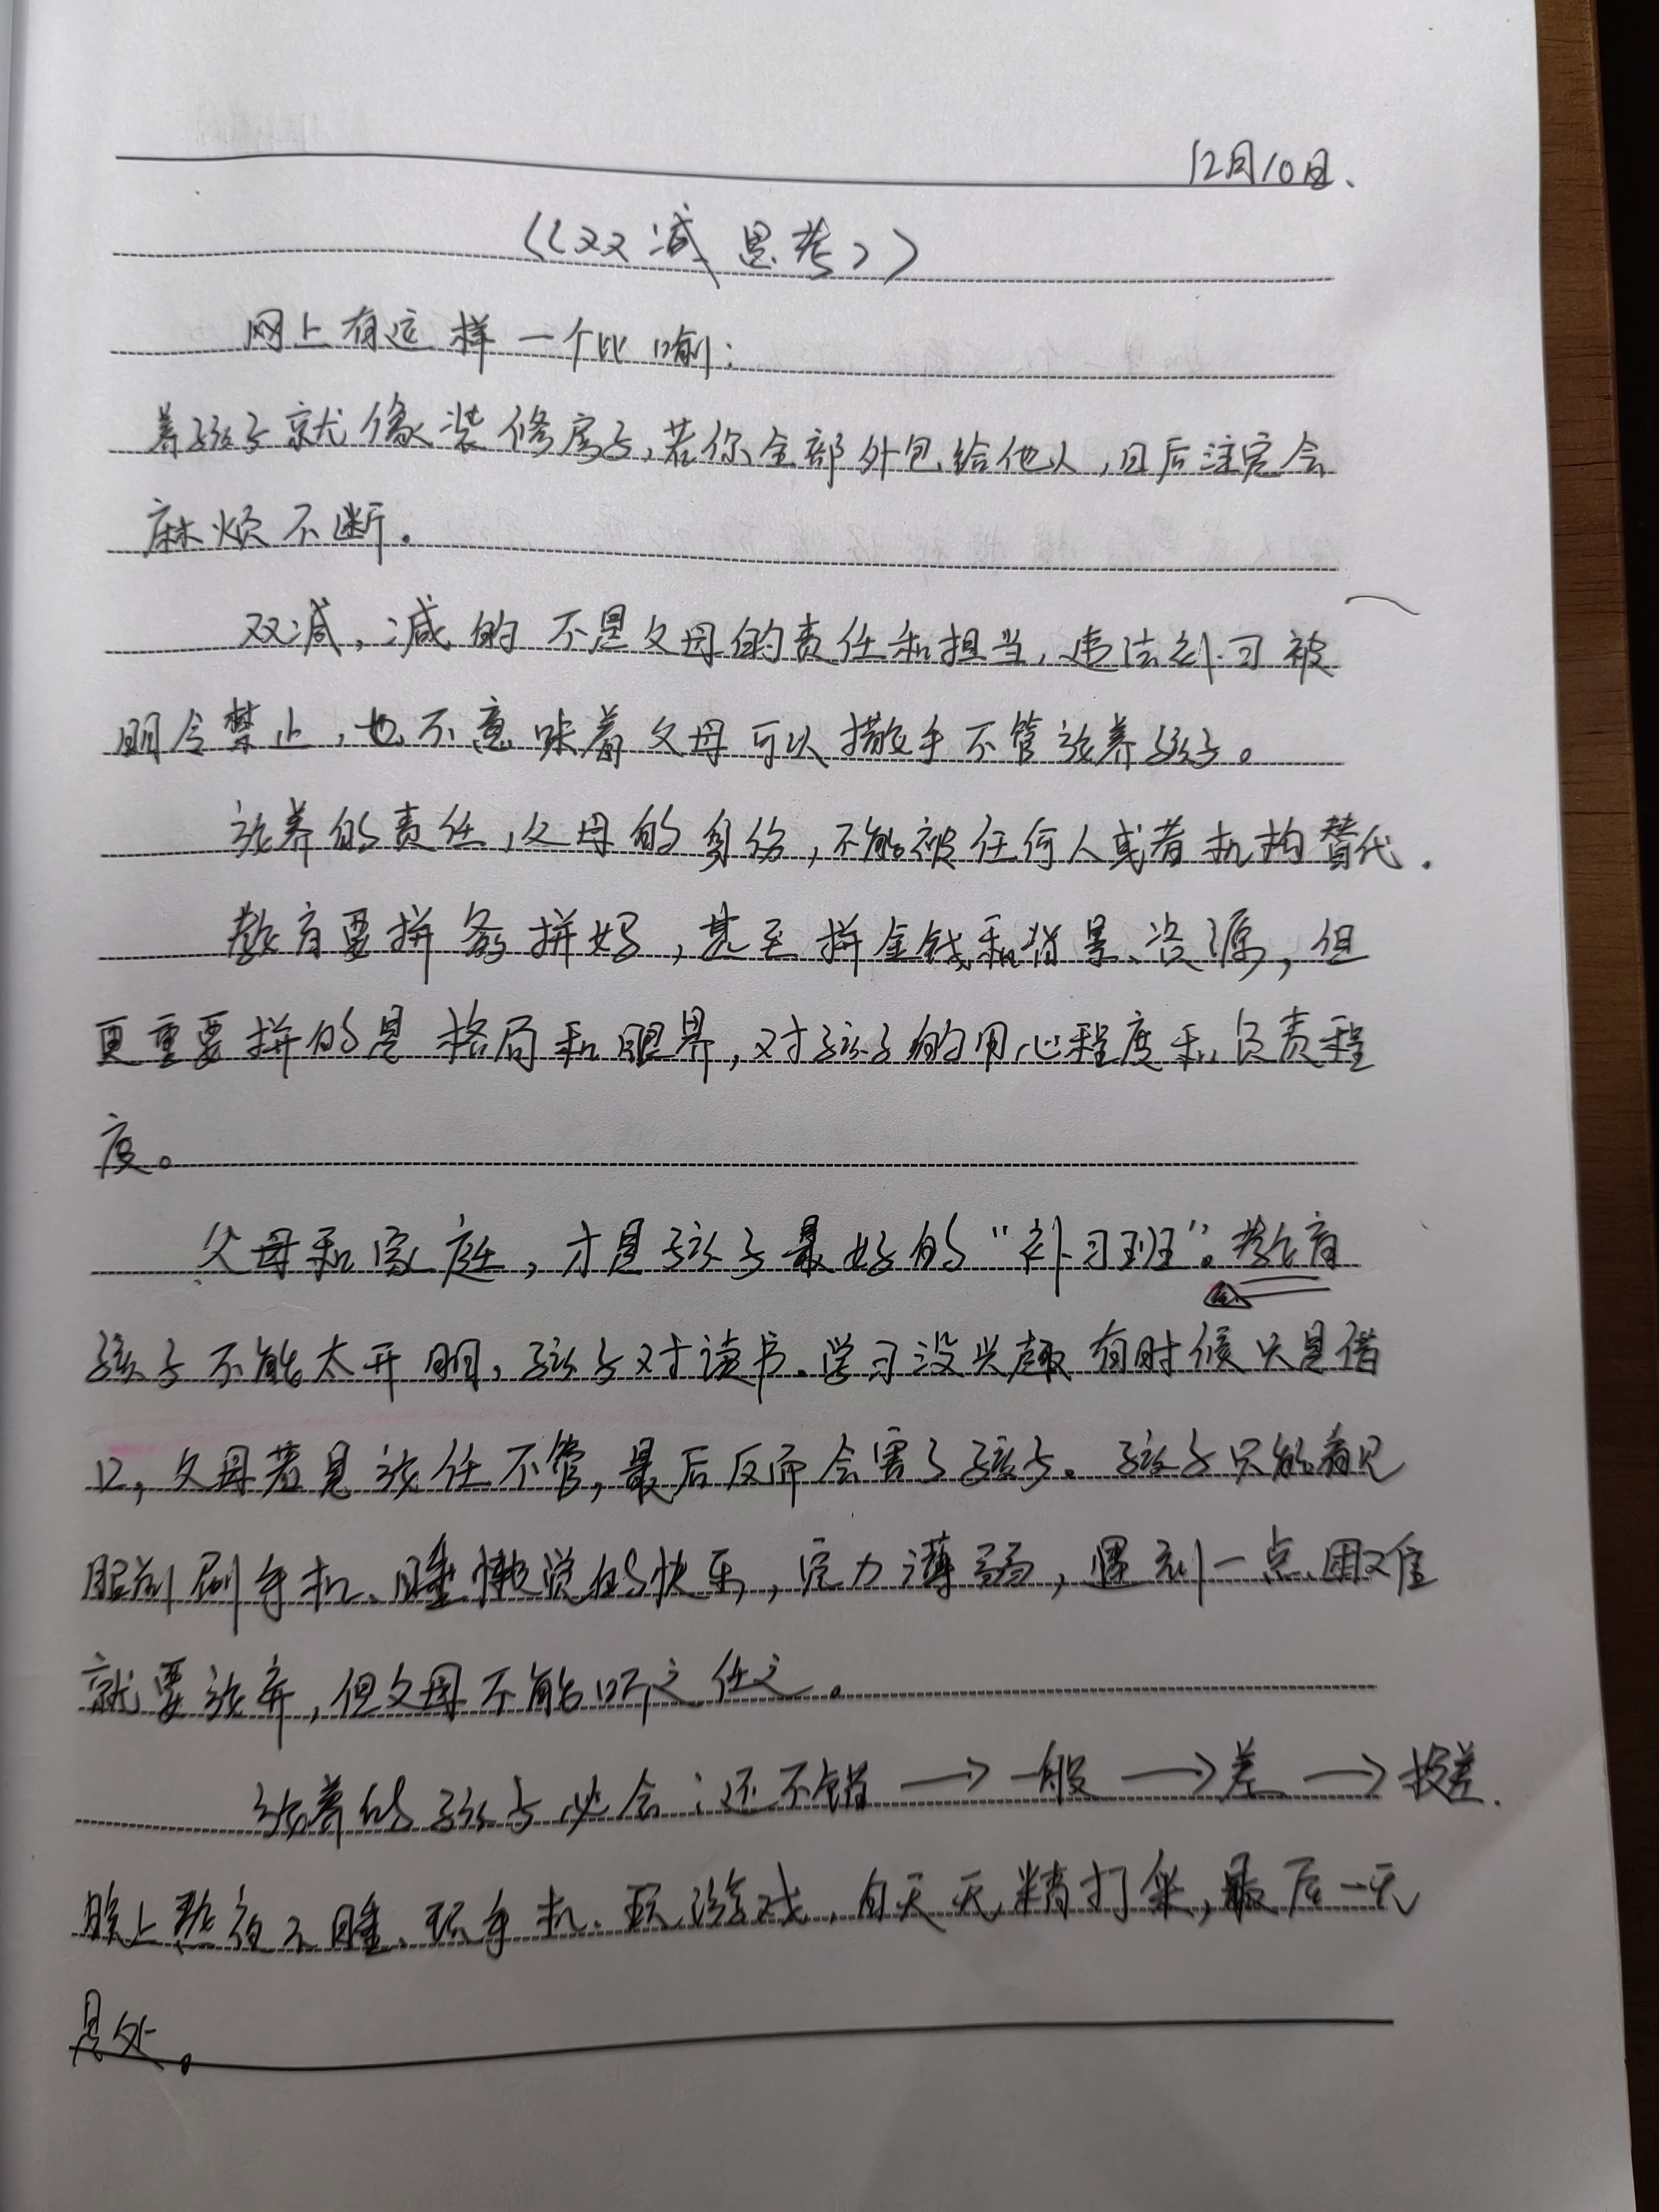 12月10日、
《双减思考》
网上有这样一个比喻：
养孩子就像装修房子，若你全部外包给他人，日后注定会
麻烦不断。
双减，减的不是父母的责任和担当，违法补习被
明令禁止，也不意味着父母可以撒手不管放养孩子。
放养的责任，父母的身份，不能被任何人或者机构替代．
教育要拼爹拼妈，甚至拼金钱和背景、资源，但
更重要拼的是格局和眼界，对孩子的用心程度和负责程
度。
父母和家庭，才是孩子最好的“补习班”。教育
孩子不能太开明，孩子对读书、学习没兴趣有时候只是借
口，父母若是放任不管，最后反而会害了孩子。孩子只能看见
眼前刷手机、睡懒觉的快乐，定力薄弱，遇到一点困难
就要放弃，但父母不能听之任之。
放养的孩子必会：还不错→一般→差→较差．
晚上熬夜不睡、玩手机、玩游戏，白天无精打采，最后一无
是处。